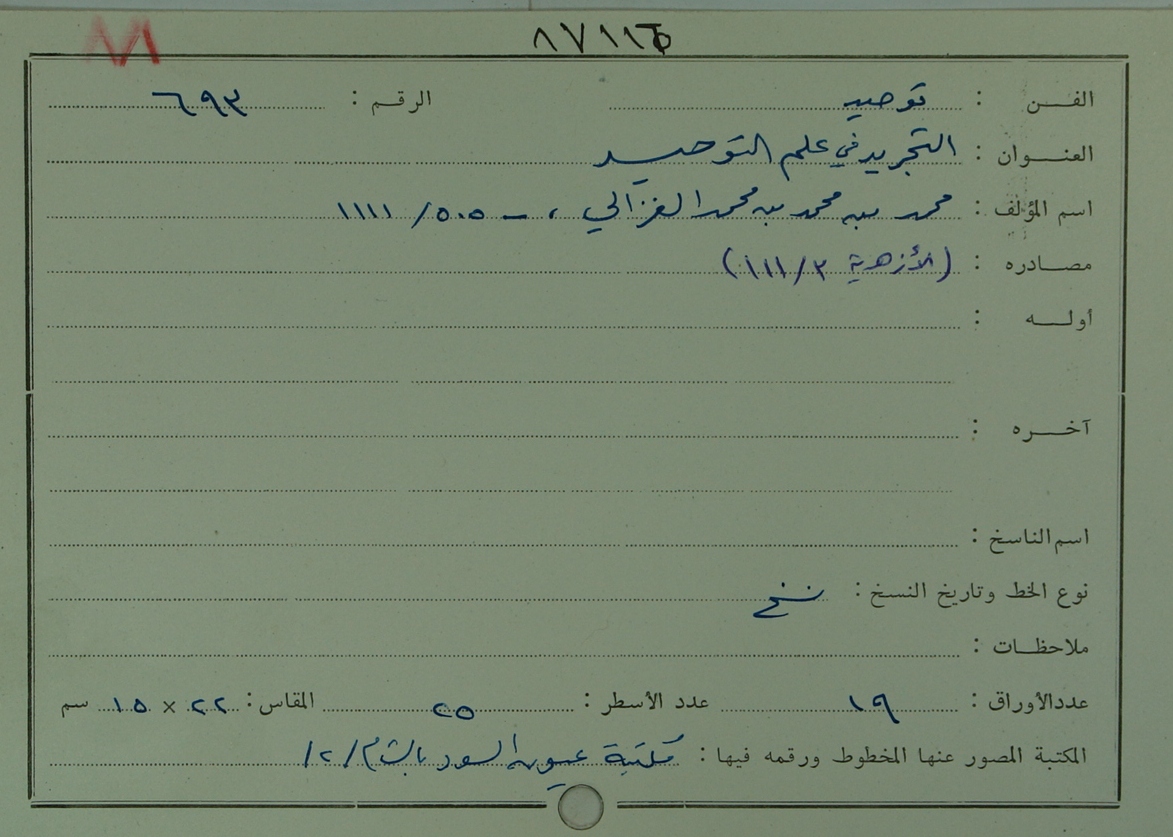 ٨٧١١
الفن : توحيد الرقم : ٦٩٣
العنوان : التجريد في علم التوحيد
اسم المؤلف : محمد بن محمد بن محمد الغزالي ، ـ ٥٠٥/ ١١١١
مصادره : (الأزهرية ٣/١١١)
أوله :
آخره :
اسم الناسخ :
نوع الخط وتاريخ النسخ : نسخ
ملاحظات :
عدد الأوراق : ١٩ عدد الأسطر : ٢٥ المقاس : ٢٢ × ١٥ سم
المكتبة المصور عنها المخطوط ورقمه فيها : مكتبة عيون السود بالشام /٢/